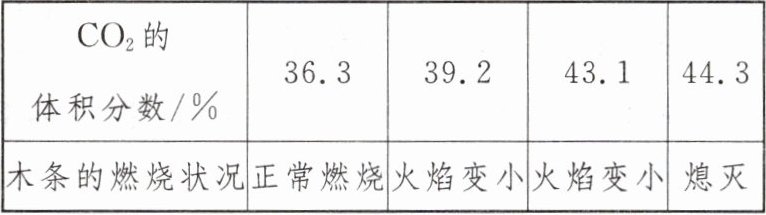 CO₂的
体积分数/% 36.3 39.2 43.1 44.3
木条的燃烧状况 正常燃烧 火焰变小 火焰变小 熄灭